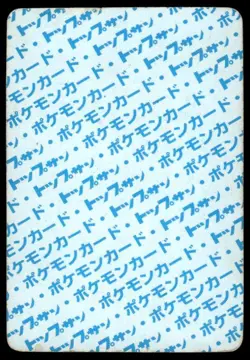 トップサン・
ポケモンカード・トップサン・
トップサン・ポケモンカード・トップサン
ポケモンカード・トップサン・ポケモンカード
トップサン・ポケモンカード・トップサン
ポケモンカード・トップサン・ポケモンカード
トップサン・ポケモンカード・トップサン
ポケモンカード・トップサン・ポケモンカード
トップサン・ポケモンカード・トップサン
ポケモンカード・トップサン・ポケモンカード
トップサン・ポケモンカード
ポケモンカード